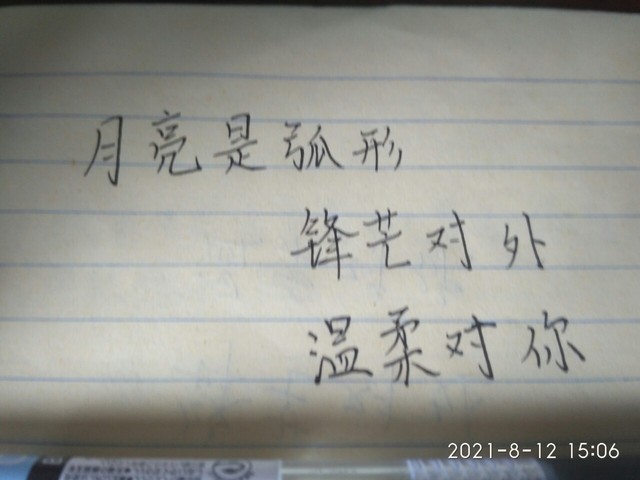 月亮是弧形
锋芒对外
温柔对你
2021-8-12 15:06